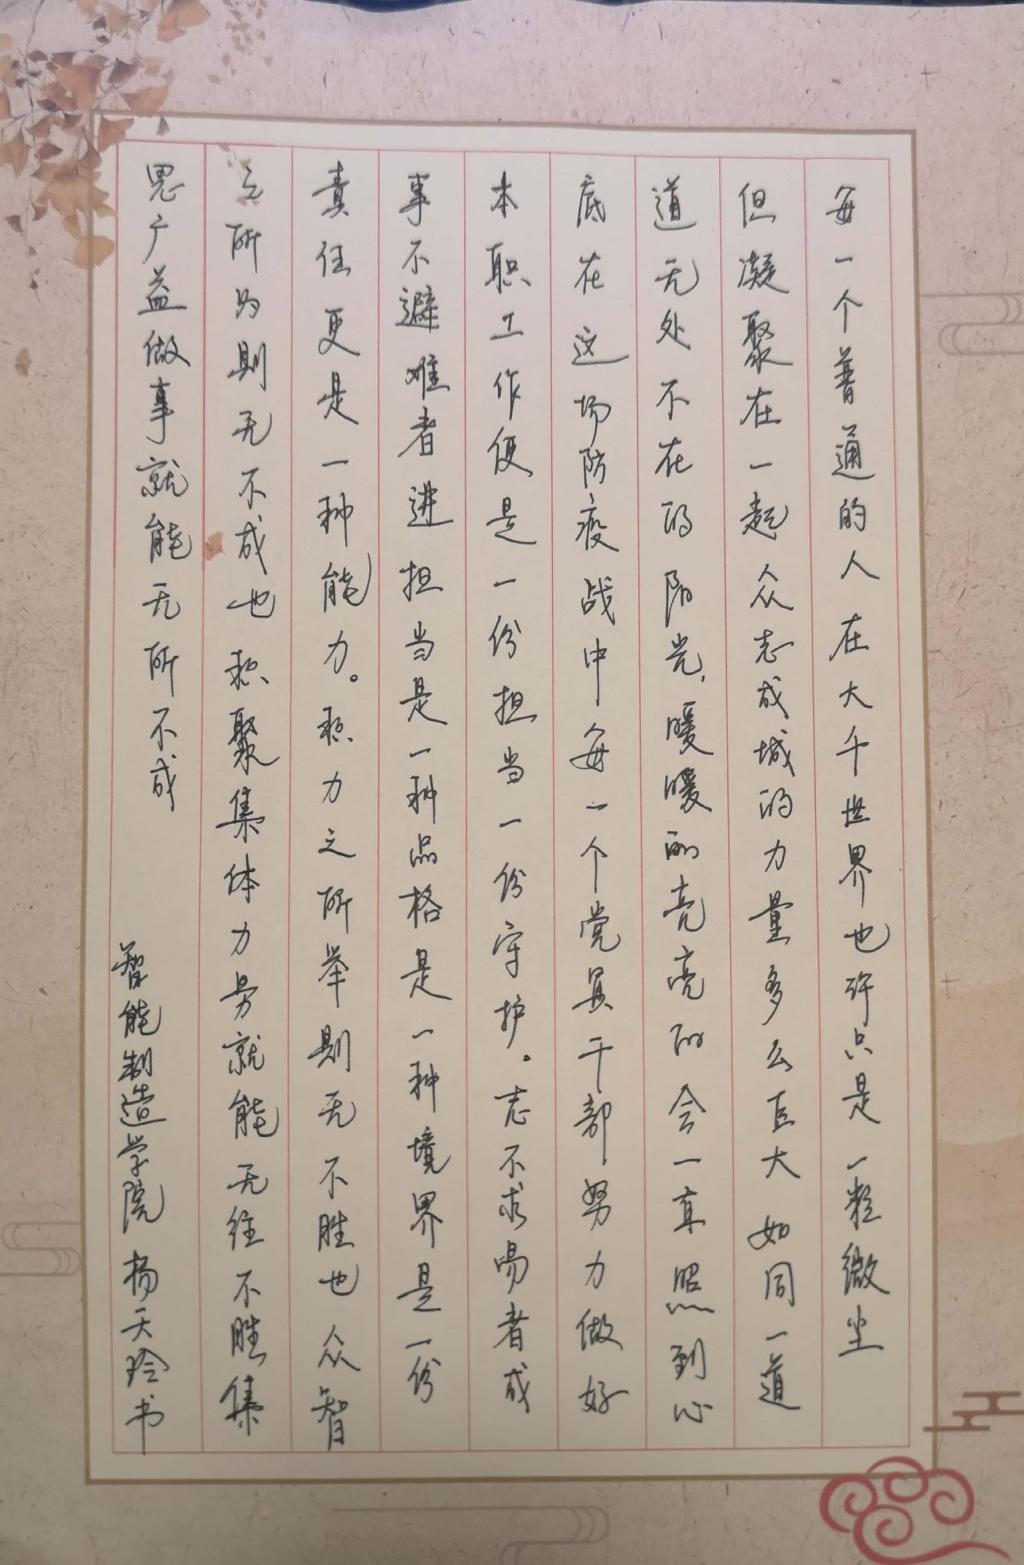 每一个普通的人在大千世界也许只是一粒微尘
但凝聚在一起众志成城的力量多么巨大如同一道
道无处不在的阳光，暖暖的亮亮的会一直照到心
底在这场防疫战中每一个党员干部努力做好
本职工作便是一份担当一份守护。志不求易者成
事不避难者进担当是一种品格是一种境界是一份
责任更是一种能力。积力之所举则无不胜也众智
之所为则无不成也积聚集体力量就能无往不胜集
思广益做事就能无所不成
智能制造学院杨天玲书